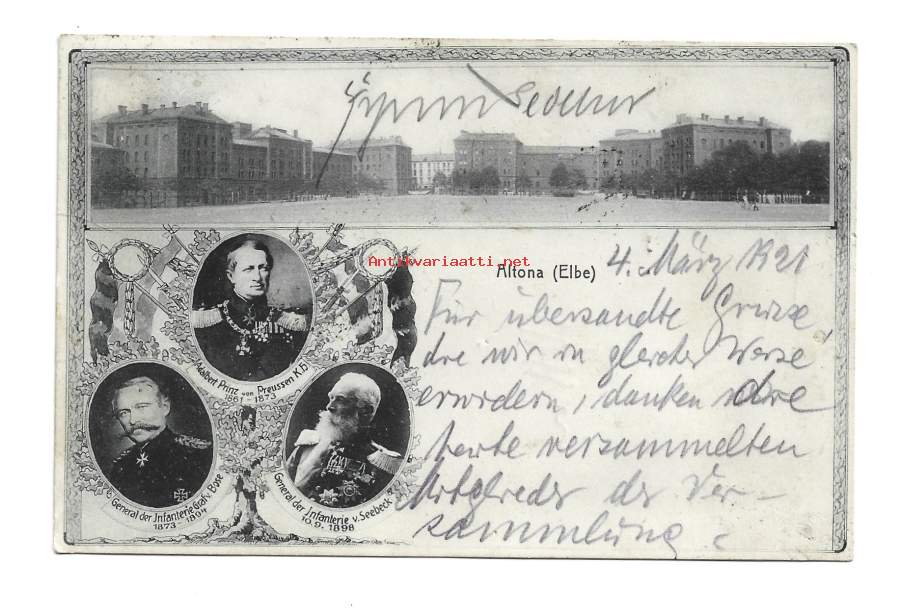 Antikvariaatti.net
Altona (Elbe) 4. März 1921
Für übersandte Grüsse
die wir in gleicher Weise
erwidern, danken
heute versammelten
Mitglieder der Ver-
sammlung.
Adalbert Prinz von Preussen K.H.
1861-1873
General der Infanterie Graf v. Bose
1873-1894
General der Infanterie v. Seebeck
10.9.1898